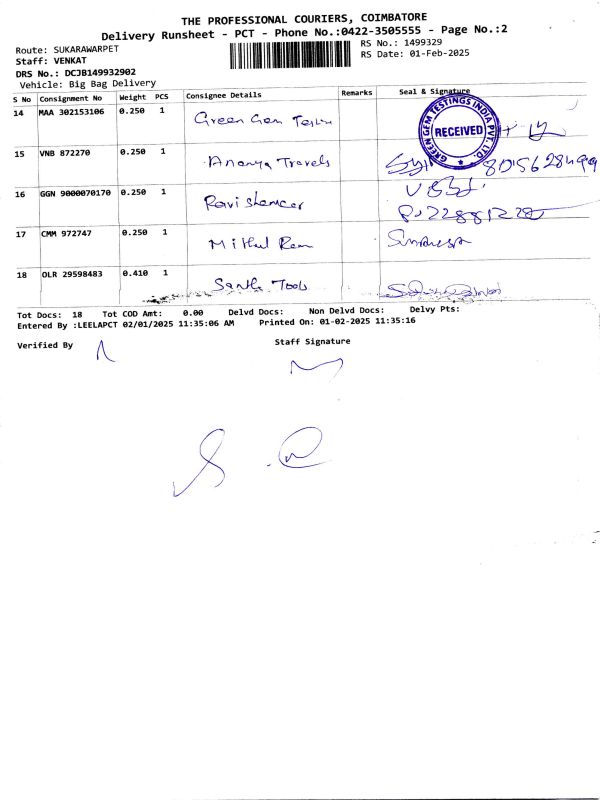 THE PROFESSIONAL COURIERS, COIMBATORE
Delivery Runsheet - PCT - Phone No.:0422-3505555 - Page No.:2
Route: SUKARAWARPET
RS No.: 1499329
Staff: VENKAT
RS Date: 01-Feb-2025
DRS No.: DCJB149932902
Vehicle: Big Bag Delivery
S No Consignment No Weight PCS Consignee Details Remarks Seal & Signature
14 MAA 302153106 0.250 1 Green Gem
GREEN GEM TESTINGS INDIA PVT. LTD.
RECEIVED
15 VNB 872270 0.250 1 Ananya Travels
16 GGN 9000070170 0.250 1 Ravi shancar
17 CMM 972747 0.250 1 Mithul Ram
18 OLR 29598483 0.410 1 Santhi Tools
Tot Docs: 18 Tot COD Amt: 0.00 Delvd Docs: Non Delvd Docs: Delvy Pts:
Entered By :LEELAPCT 02/01/2025 11:35:06 AM Printed On: 01-02-2025 11:35:16
Verified By Staff Signature